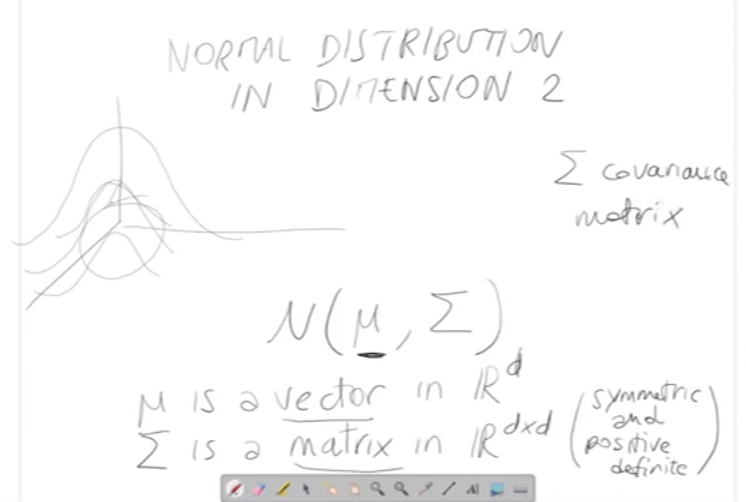 NORMAL DISTRIBUTION
IN DIMENSION 2
Σ covariance
matrix
N(μ, Σ)
μ IS a vector in ℝ^d
Σ IS a matrix in ℝ^dxd (symmetric
and
positive
definite)
AI